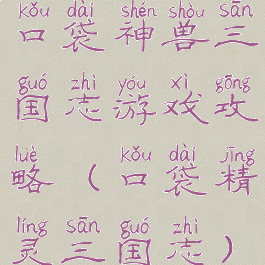 kǒu dài shén shòu sān
口袋神兽三
guó zhì yóu xì gōng
国志游戏攻
lüè kǒu dài jīng
略(口袋精
líng sān guó zhì
灵三国志)